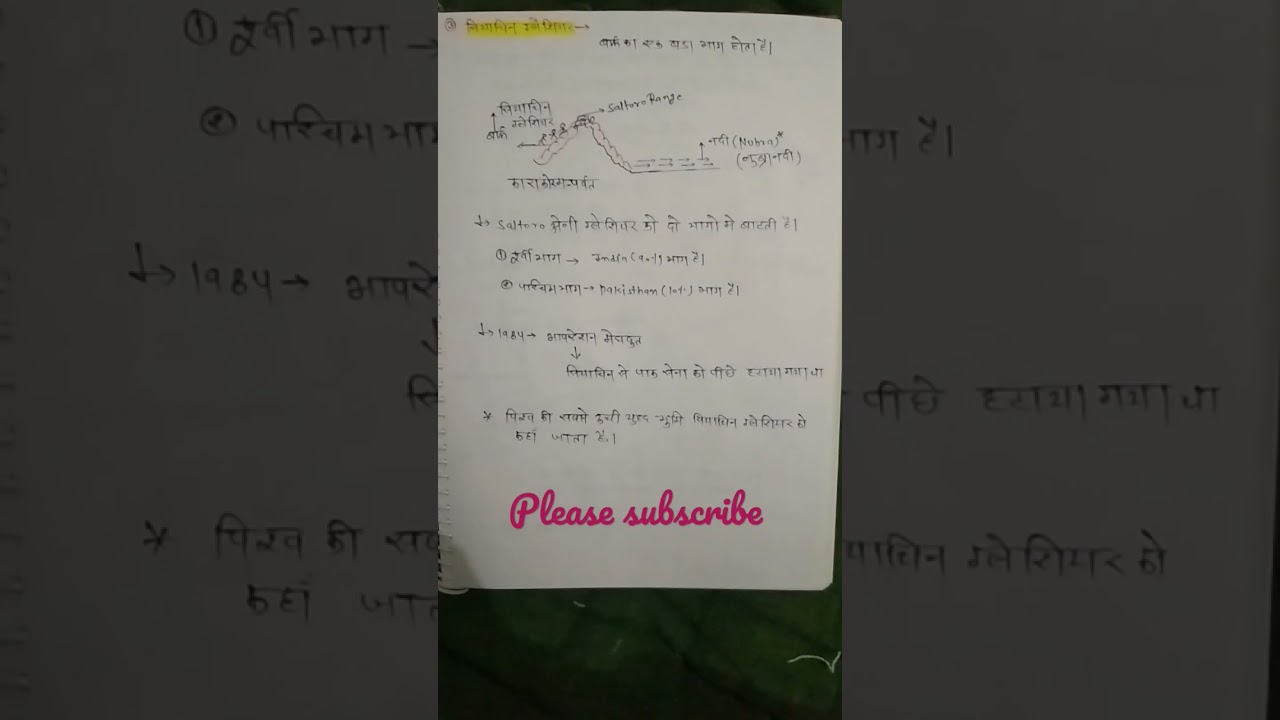 ③ सियाचिन ग्लेशियर →
बर्फ का एक बड़ा भाग होता है।
सियाचिन ग्लेशियर
बर्फ
Saltoro Range
नदी (Nubra)*
(नुब्रा नदी)
काराकोरम पर्वत
↳ Saltoro श्रेनी ग्लेशियर को दो भागो मे बाटती है।
① पूर्वी भाग → India (90%) भाग है।
② पश्चिम भाग → Pakisthan (10%) भाग है।
↳ 1984 → आपरेशन मेघदुत
↓
सियाचिन से पाक सेना को पीछे हराया गया था
* विश्व की सबसे ऊची युद्द भुमि सियाचिन ग्लेशियर को
कहाँ जाता है।
Please subscribe